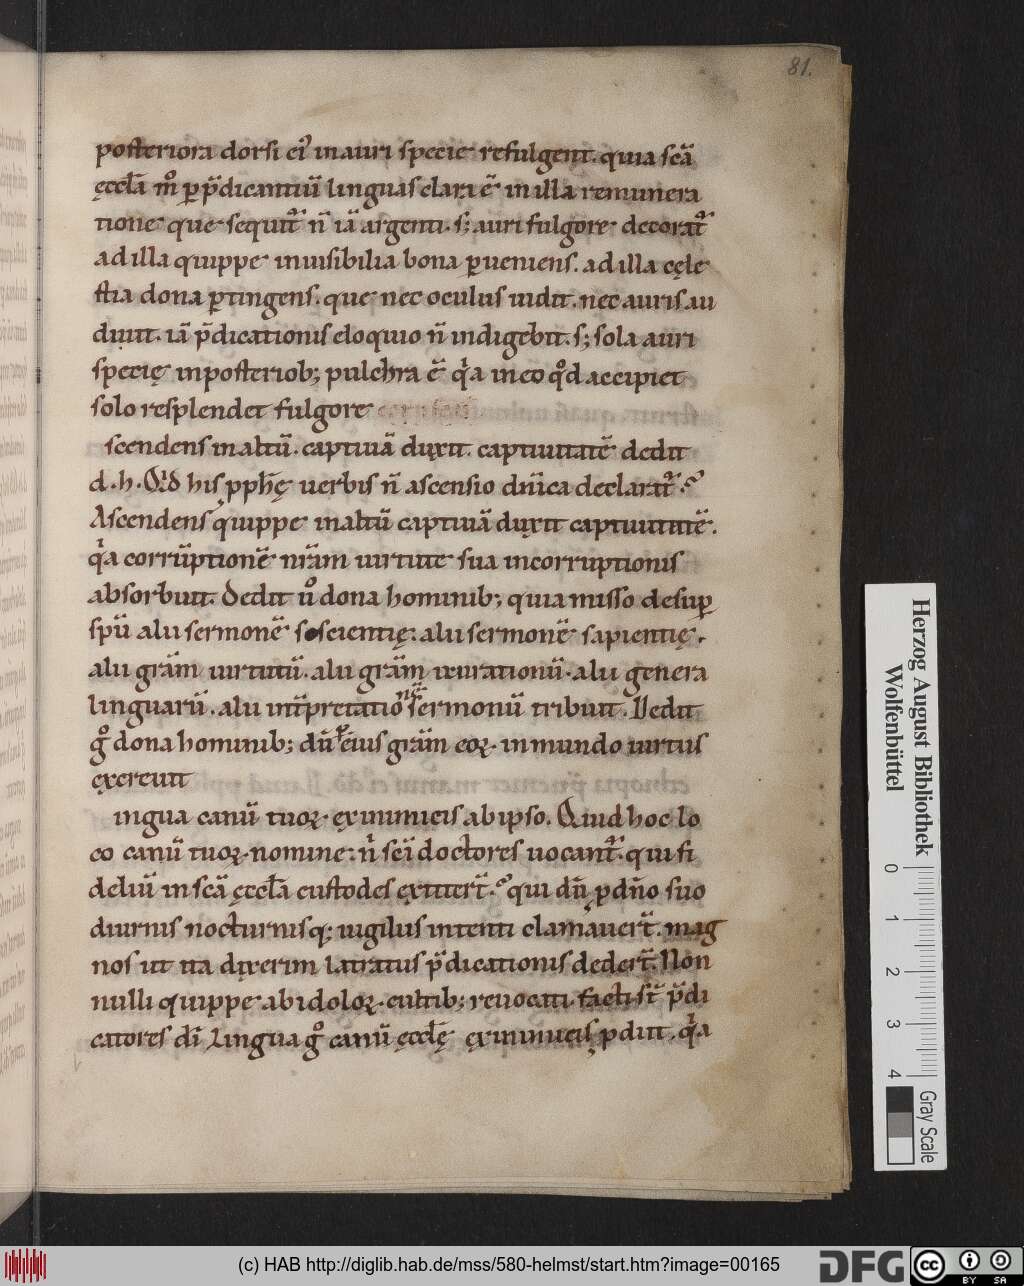 81.
posteriora dorsi ei᷒ in auri specie refulgent. quia scā
ęcclā m̊ ꝑ p̄dicantiū linguas clara ē in illa remunera
tione que sequit᷑ n̄ iā argenti. s; auri fulgore decorat᷑
ad illa quippe inuisibilia bona ꝑueniens. ad illa cęle
stia dona ꝑtingens. que nec oculus uidit. nec auris au
diuit. iā p̄dicationis eloquio n̄ indigebit. s; sola auri
specię in posteriob; pulchra ē qͥa in eo qͦd accipiet
solo resplendet fulgore
scendens in altū. captiuā duxit captiuitatē dedit
d. h. Qͥd his pph̄ę uerbis n̄ ascensio dn̄ica declarat᷑.
Ascendens quippe in altū captiuā duxit captiuitatē.
qͥa corruptionē nr̄am uirtute sua incorruptionis
absorbuit. Dedit ů dona hominib; quia misso desuꝑ
spū alii sermonē scientię. alii sermonē sapientię.
alii grām uirtutū. alii grām curationū. alii genera
linguarū. alii int̄pretationē sermonū tribuit. Dedit
g̊ dona hominib; dū eius grām eoꝝ in mundo uirtus
exercuit
ingua canū tuoꝝ ex inimicis ab ipso. Quid hoc lo
co canū tuoꝝ nomine. nͥ sc̄i doctores uocant᷑. qui fi
deliū in scā ęcclā custodes extiter̄t. qui dn̄ ꝓ dn̄o suo
diurnis nocturnisq; uigiliis intenti clamauer̄t. mag
nos ut ita dixerim latratus p̄dicationis deder̄t. Non
nulli quippe ab idoloꝝ cultib; reuocati. facti st̄ p̄di
catores dī. Lingua g̊ canū ęcclę ex inimicis ꝓdiit. qͥa
Herzog August Bibliothek
Wolfenbüttel
0 1 2 3 4
Gray Scale
(c) HAB http://diglib.hab.de/mss/580-helmst/start.htm?image=00165
DFG
cc BY SA